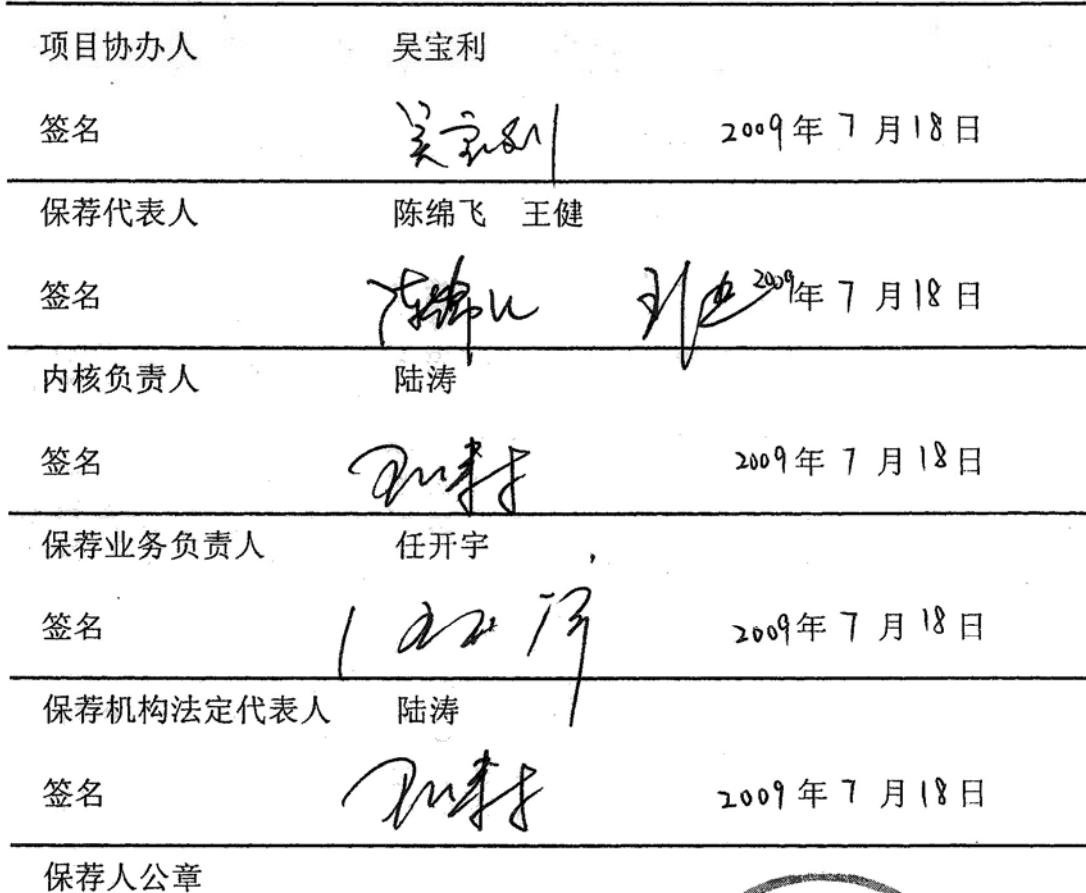 项目协办人 吴宝利
签名 吴宝利 2009年7月18日
保荐代表人 陈绵飞 王健
签名 2009年7月18日
内核负责人 陆涛
签名 2009年7月18日
保荐业务负责人 任开宇
签名 2009年7月18日
保荐机构法定代表人 陆涛
签名 2009年7月18日
保荐人公章